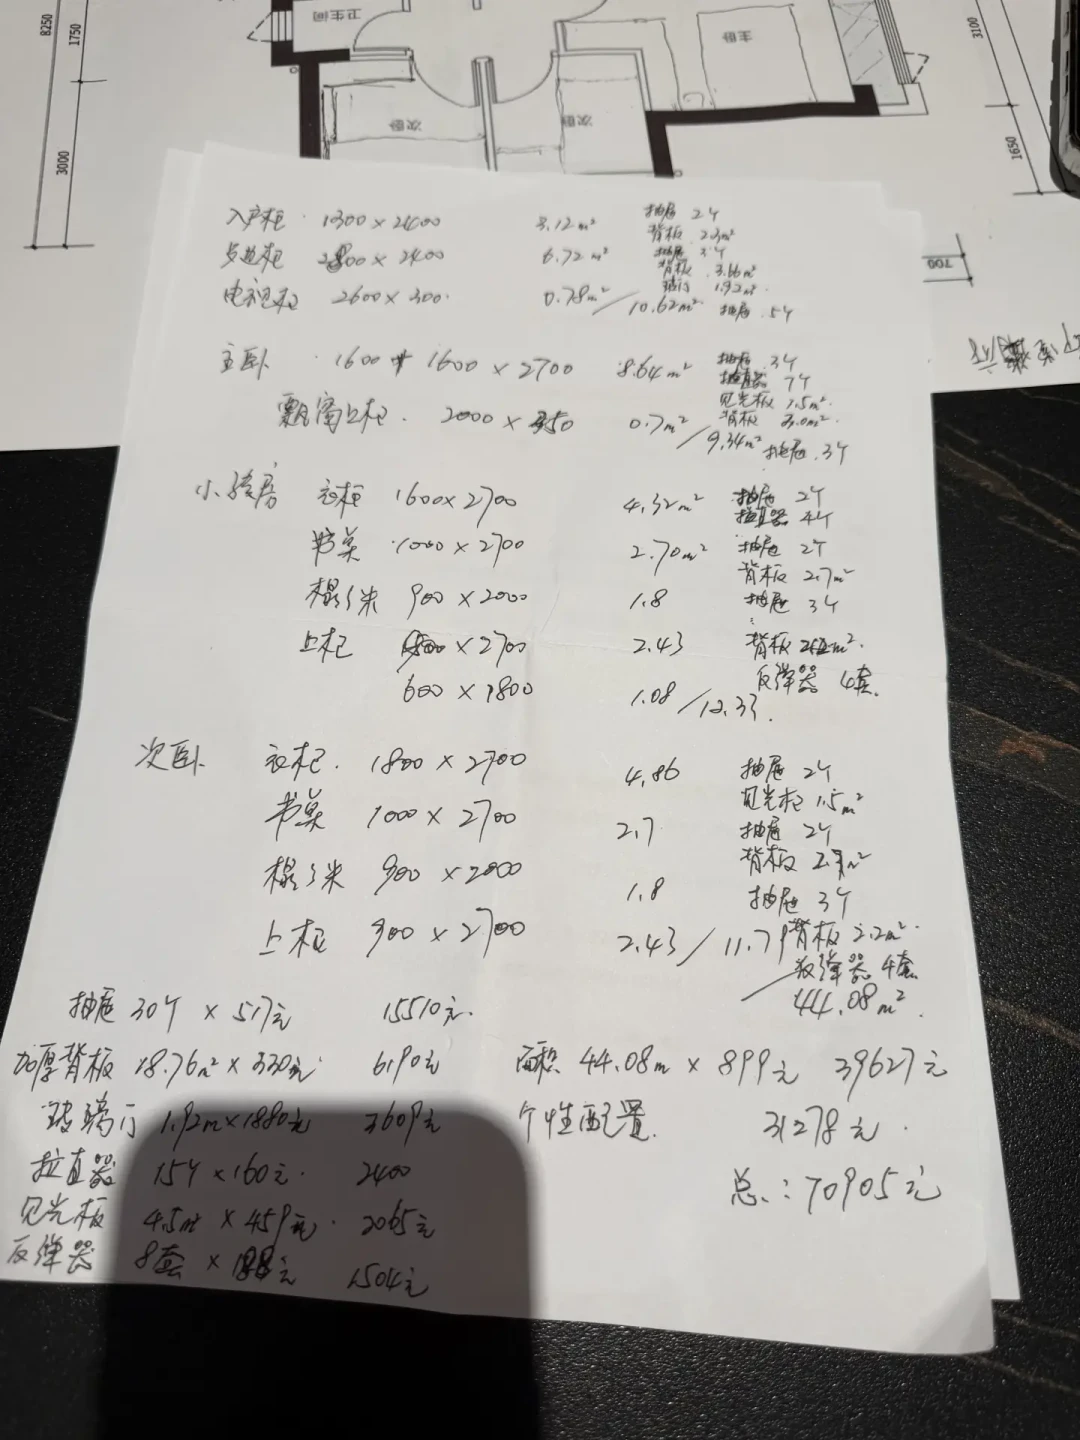 8250
1750
3000
卫生间
次卧
次卧
主卧
3100
1650
700
入户柜 1300×2400 3.12m² 抽屉 2个
背板 2.3m²
2800×2400 6.72m² 抽屉 3个
背板 3.66m²
1.92m²
电视柜 2600×300 0.78m² / 10.62m² 抽屉 5个
主卧 1600+1600×2700 8.64m² 抽屉 3个
拉直器 7个
见光板 1.5m²
飘窗上柜 2000×350 0.7m² / 9.34m² 背板 3.0m²
抽屉 3个
小孩房 衣柜 1600×2700 4.32m² 抽屉 2个
拉直器 4个
书桌 1000×2700 2.70m² 抽屉 2个
背板 2.7m²
榻榻米 900×2000 1.8 抽屉 3个
上柜 900×2700 2.43 背板 m²
600×1800 1.08 / 12.33 反弹器 4套
次卧 衣柜 1800×2700 4.86 抽屉 2个
见光柜 1.5m²
书桌 1000×2700 2.7 抽屉 2个
背板 m²
榻榻米 900×2000 1.8 抽屉 3个
上柜 900×2700 2.43 / 11.79 背板 2.2m²
反弹器 4套
44.08m²
抽屉 30个 × 517元 15510元
加厚背板 18.76m² × 330元 6190元 面积 44.08m × 899元 39627元
玻璃门 1.92m×1880元 3609元 个性配置 31278元
拉直器 15个×160元 2400 总:70905元
见光板 4.5m² × 459元 2065元
反弹器 8套 × 188元 1504元